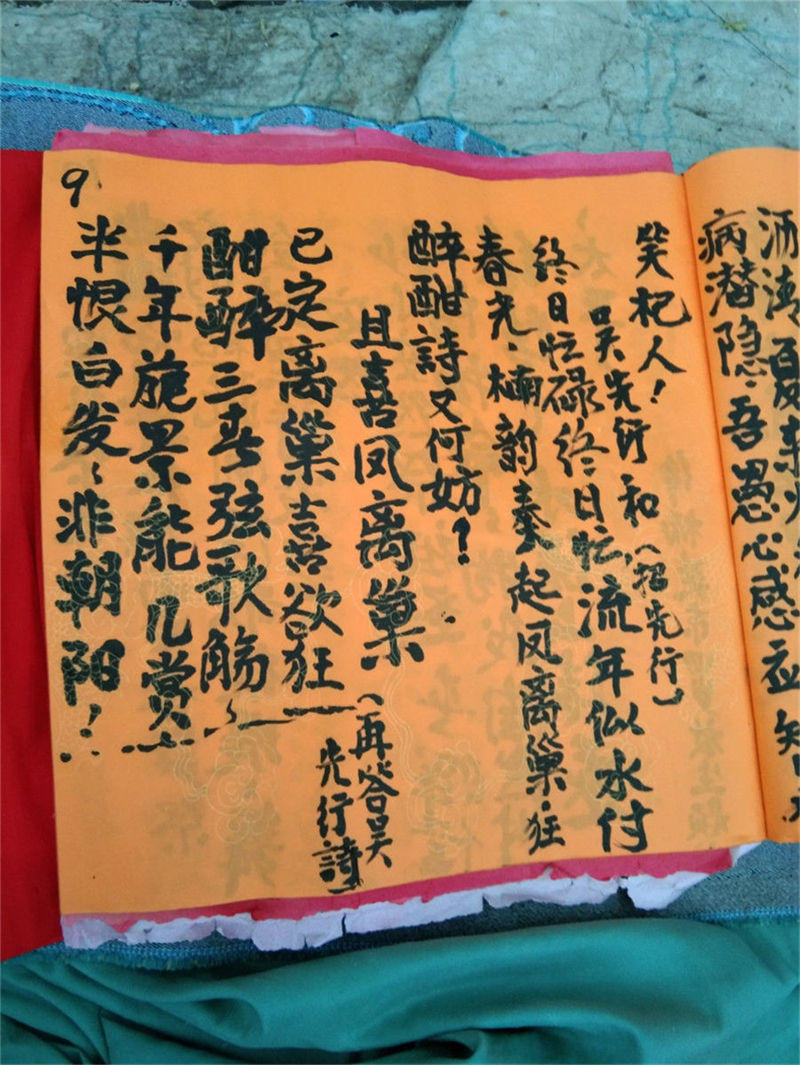 洒涛夏
病潜隐、吾愚心感
笑杞人！
吴先行和（招先行）
终日忙碌终日忙流年似水付
春光、楠韵奏起凤离巢、狂
醉酣詩又何妨？
且喜凤离巢（再答吴
先行詩）
已定离巢喜欲狂
酣醉三春弦歌觞
千年旎景能几赏
半恨白发、非朝阳！
9